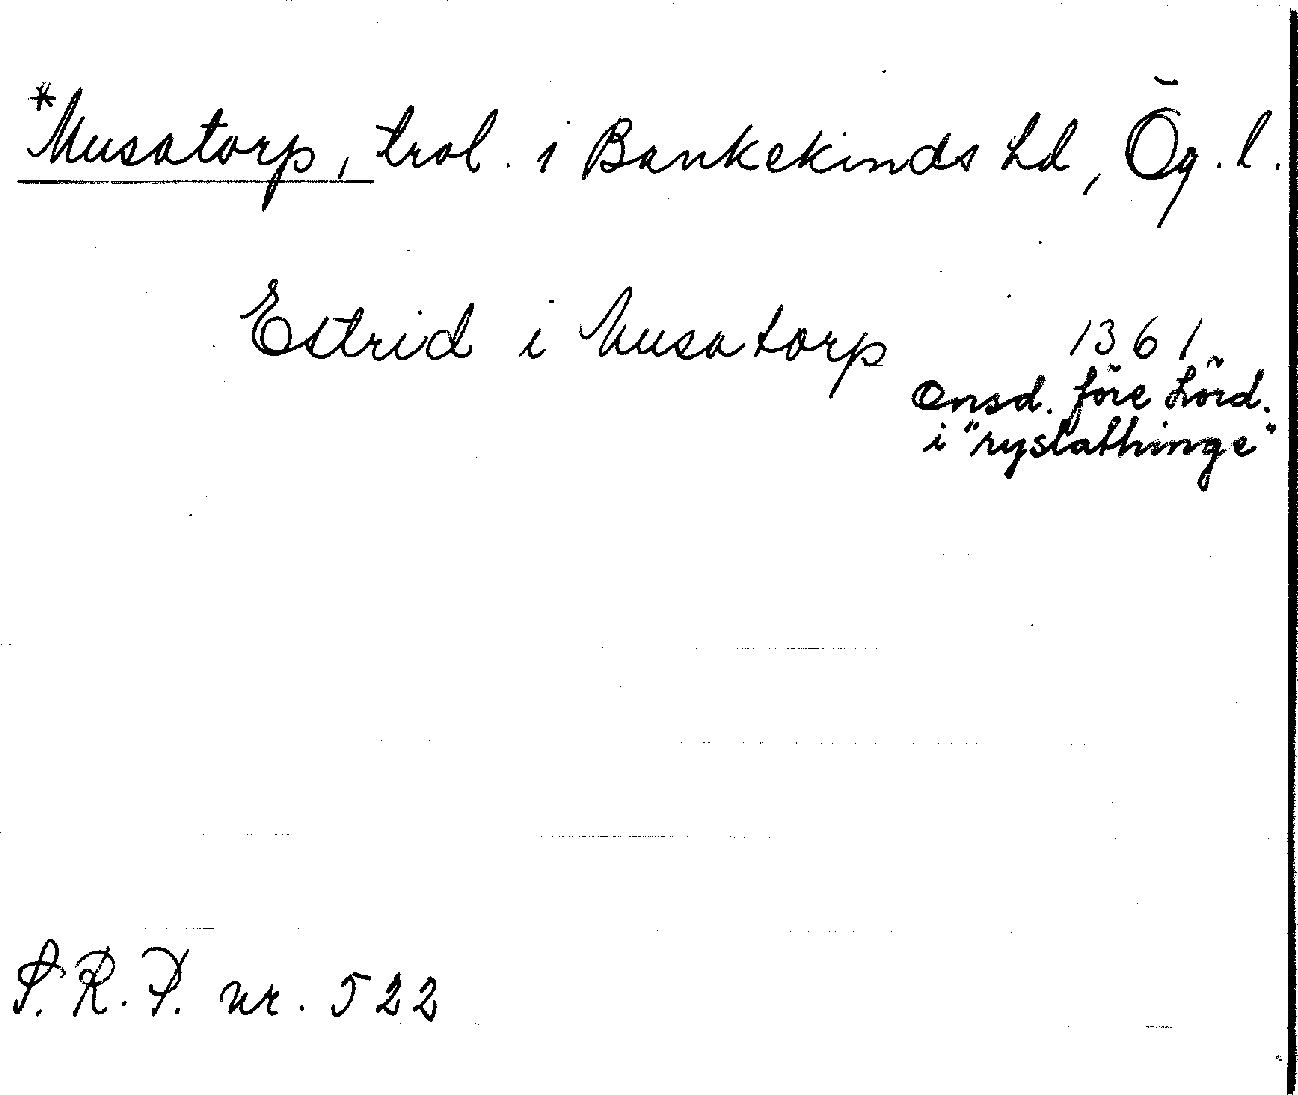 *Musatorp, trol. i Bankekinds hd, Ög. l.
Estrid i Musatorp 1361
onsd. före Lörd.
i "ryslathinge"
S.R.P. nr. 522